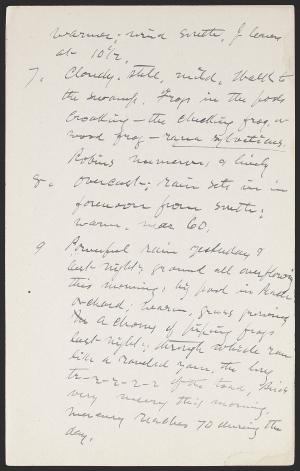 warmer; wind South, J leaves
at 10½.
7, Cloudy, still, mild, Walk to
the swamp. Frogs in the pools
croaking — the clucking frog, or
wood frog — rana sylvaticus.
Robins numerous, & lively
8. overcast; rain sets in in
forenoon from South;
warm, near 60.
9 Powerful rain yesterday &
last night; ground all overflowing
this morning; big pool in
orchard; warm, grass growing
A chorus of piping frogs
last night; through which ran
like a rounded yarn, the long
tr-r-r-r-r of the toad, Birds
very merry this morning.
mercury reaches 70 during the
day.